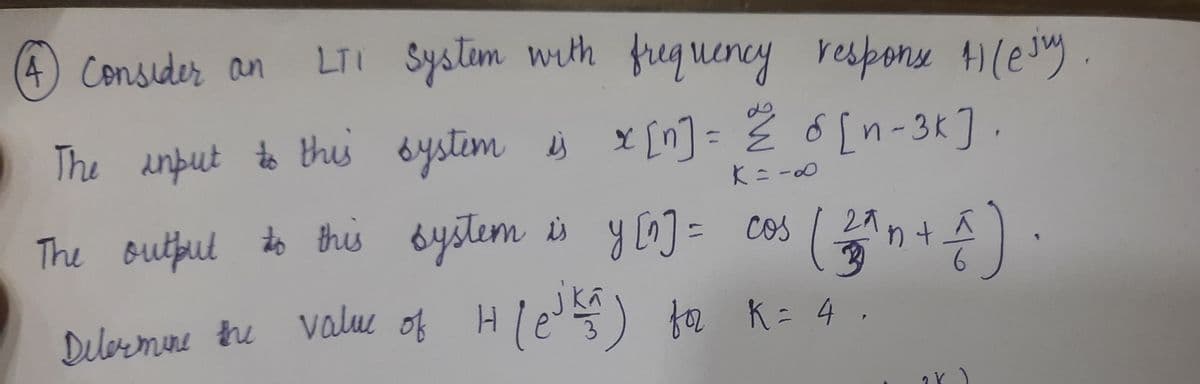 ④ Consider an LTI System with frequency response H(e^jω).
The input to this system is x[n] = ∞ Σ K=-∞ δ[n-3K].
The output to this system is y[n] = cos(2π/3 n + π/6).
Determine the value of H(e^jKπ/3) for K = 4.